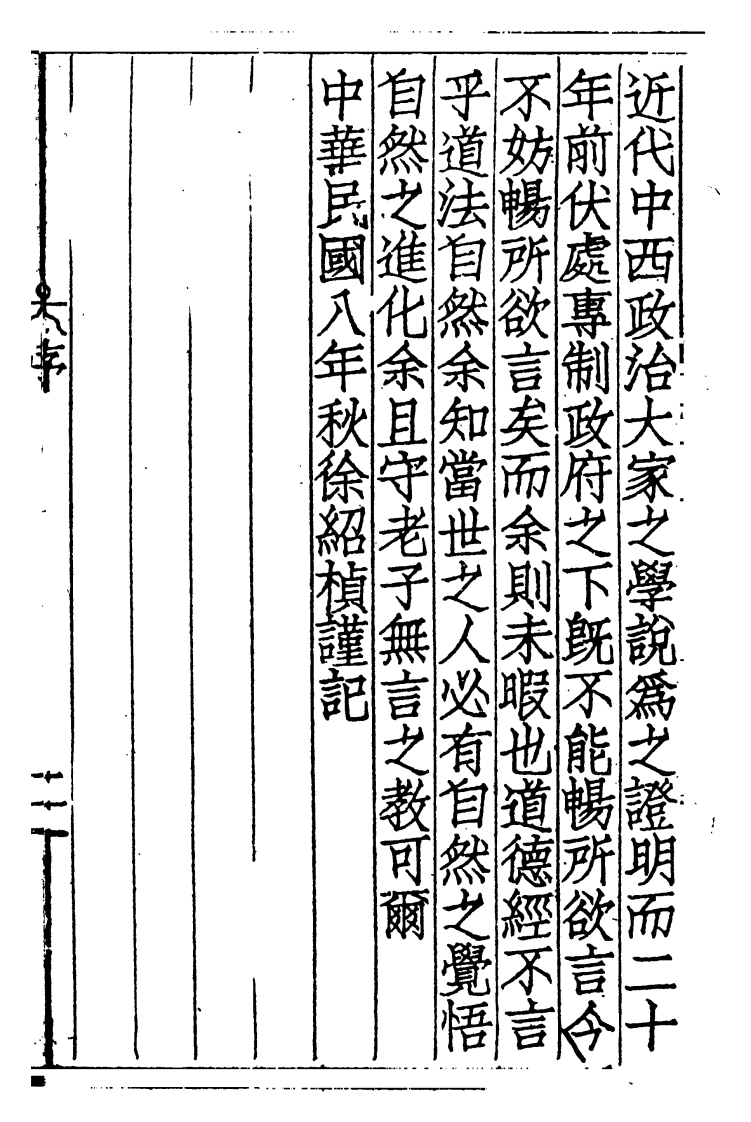 近代中西政治大家之學說爲之證明而二十
年前伏處專制政府之下旣不能暢所欲言今
不妨暢所欲言矣而余則未暇也道德經不言
乎道法自然余知當世之人必有自然之覺悟
自然之進化余且守老子無言之教可爾
中華民國八年秋徐紹楨謹記
序